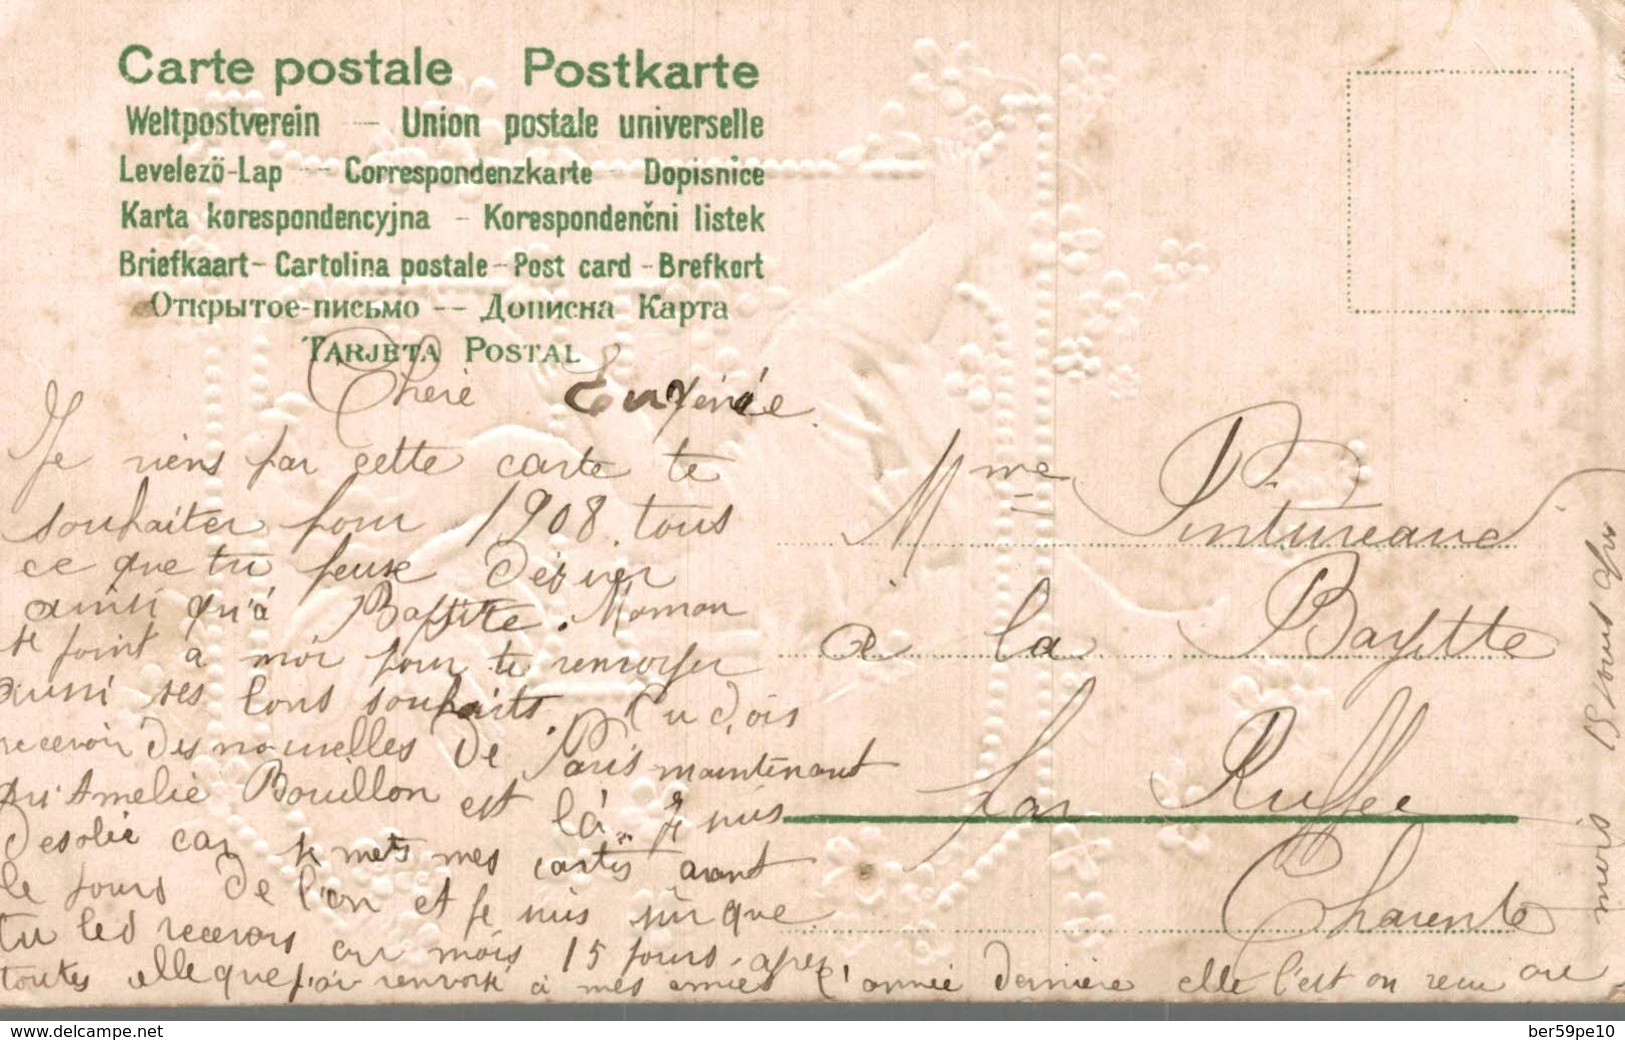 Carte postale Postkarte
Weltpostverein — Union postale universelle
Levelező-Lap — Correspondenzkarte Dopisnice
Karta korespondencyjna - Korespondenčni listek
Briefkaart - Cartolina postale - Post card - Brefkort
Открытое-письмо -- Дописна Карта
TARJETA POSTAL
Cheré Eugénée
Je viens par cette carte te
souhaiter pour 1908. tous
ce que tu peux
ainsi qu'à Baptite. Maman
se joint a moi pour te renvoyer
aussi ses bons souhaits. Tu dois
recevoir des nouvelles de Paris maintenant
qu'Amelie Bouillon est là. Je suis
desolée car je mets mes cartes avant
le jours de l'an et je suis sur que
tu les recevras au mois 15 jours. apres
toutes elle que j'ai renvoyé à mes amies l'année derniere elle l'est on recu au
moins 15 jours apres
Mme Pintureaud
a la Bayette
par Ruffec
Charente
www.delcampe.net
ber59pe10